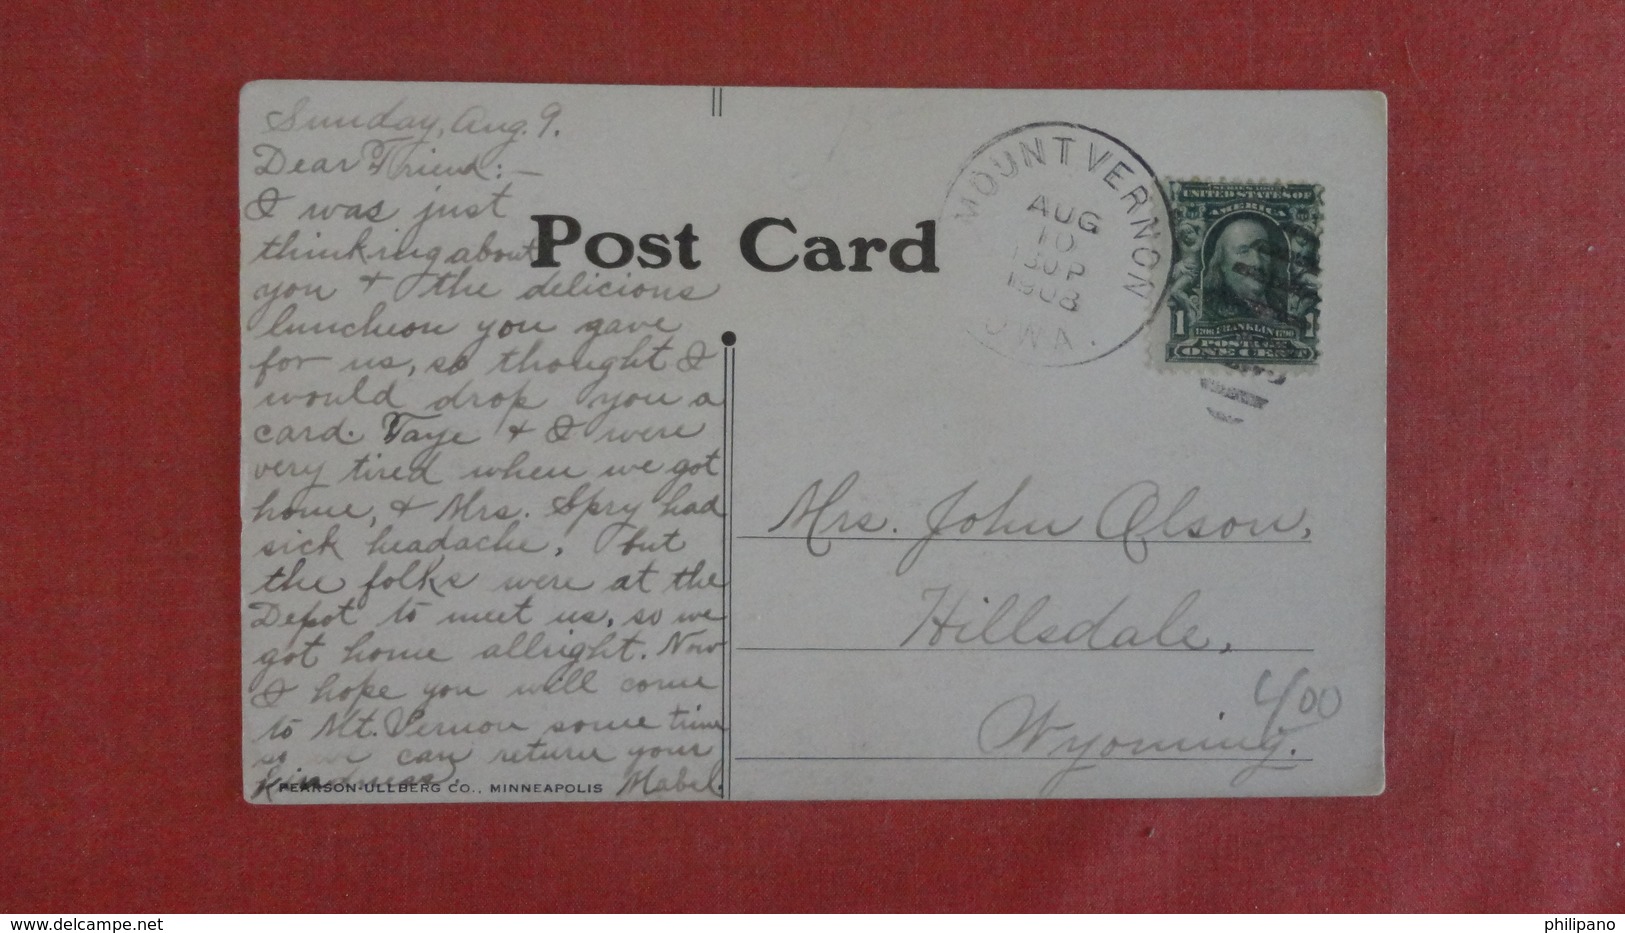 Sunday, Aug. 9.
Dear Friend:—
I was just
thinking about
you + the delicious
luncheon you gave
for us, so thought I
would drop you a
card. Faye + I were
very tired when we got
home, + Mrs. Spry had
sick headache, but
the folks were at the
Depot to meet us, so we
got home allright. Now
I hope you will come
to Mt. Vernon some time
so we can return your
kindness.
Mabel.
PEARSON-ULLBERG CO., MINNEAPOLIS
Post Card
MOUNT VERNON
AUG
10
1908
IOWA.
SERIES 1902
UNITED STATES OF
AMERICA
1706 FRANKLIN 1790
1 1
POSTAGE
ONE CENT
Mrs. John Olson,
Hillsdale,
Wyoming.
4.00
philipano